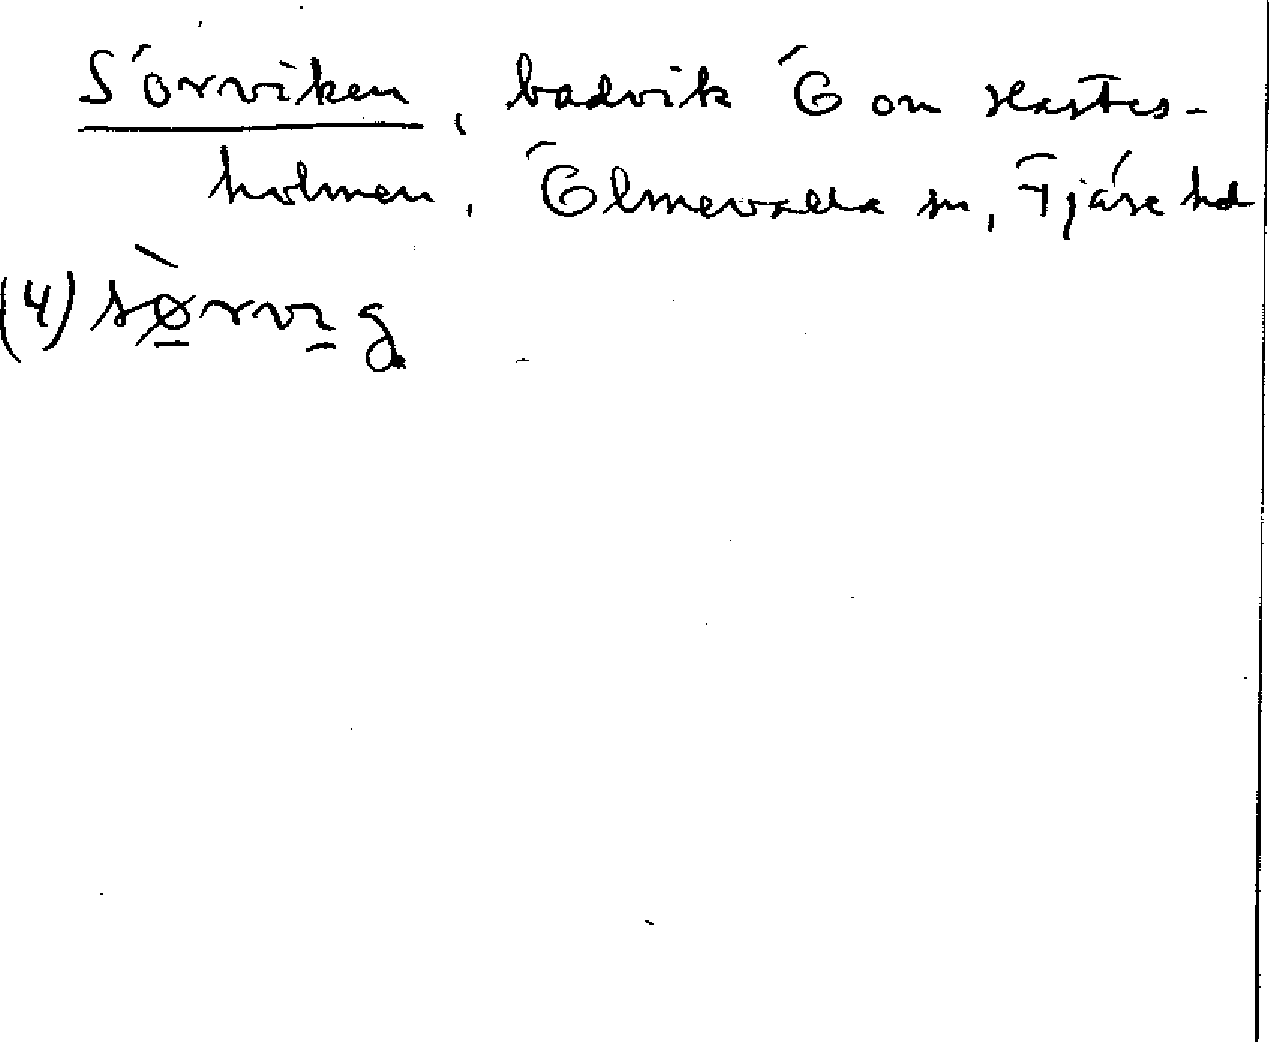 Sörviken, badvik Ö om Hästes-
holmen, Ölmevalla sn, Fjäre hd
(4) sø̱̀rvıg